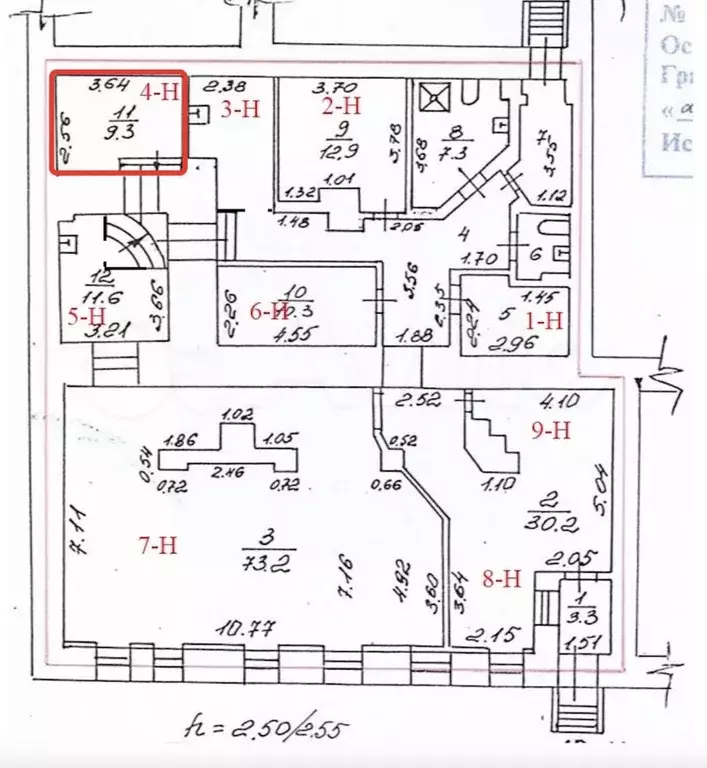 №
Ос
Гра
« а
Ис
3.64
4-Н
2.38
3-Н
3.70
2-Н
11
9.3
2.56
9
12.9
3.78
8
7.3
3.68
7
3.55
1.01
1.32
1.12
1.48
2.05
4
1.70
6
12
11.6
5-Н
3.66
3.21
2.26
6-Н
10
10.3
4.55
3.56
1.88
2.35
2.24
1.45
5
1-Н
2.96
2.52
4.10
1.02
9-Н
1.86
1.05
0.52
0.54
0.72
2.46
0.72
0.66
1.10
5.04
2
30.2
7.11
7-Н
3
73.2
7.16
4.92
3.60
3.64
8-Н
2.05
1
3.3
10.77
2.15
1.51
h = 2.50/2.55